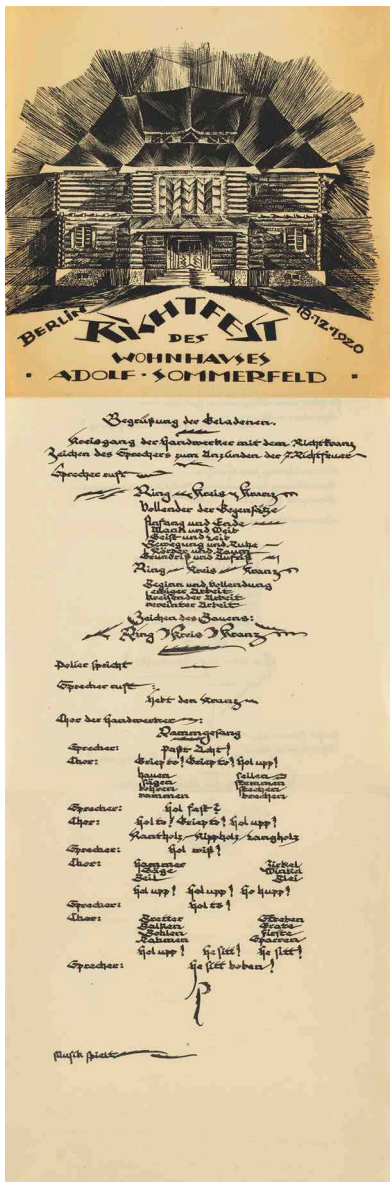 BERLIN RICHTFEST 18·12·1920
DES
WOHNHAUSES
ADOLF · SOMMERFELD
Begrüßung der Geladenen.
Kreisgang der Handwerker mit dem Richtkranz
Zeichen des Sprechers zum Anzünden der 7 Richtfeuer
Sprecher ruft
Ring Kreis Kranz
Vollender der Gegensätze
Anfang und Ende
Mann und Weib
Geist und Leib
Bewegung und Ruhe
Körper und Raum
Grundriß und Aufriß
Ring Kreis Kranz
Beginn und Vollendung
ewiger Arbeit
kreisender Arbeit
vereinter Arbeit
Zeichen des Bauens:
Ring Kreis Kranz
Polier spricht
Sprecher ruft:
hebt den Kranz
Chor der Handwerker:
Rammgesang
Sprecher: Paßt Acht!
Chor: Griep to! Griep to! Hol upp!
hauen fellen
sägen stemmen
bohren stechen
rammen brechen
Sprecher: Hol fast!
Chor: Hol to! Griep to! Hol upp!
Kantholz Rippholz Langholz
Sprecher: Hol wiß!
Chor: Hammer Zirkel
Säge Winkel
Beil Blei
Hol upp! Hol upp! Ho hupp!
Sprecher: Hol to!
Chor: Bretter Streben
Balken Grate
Bohlen Firste
Rahmen Sparren
Hol upp! He sitt! He sitt!
Sprecher: He sitt boben!
Musik spielt